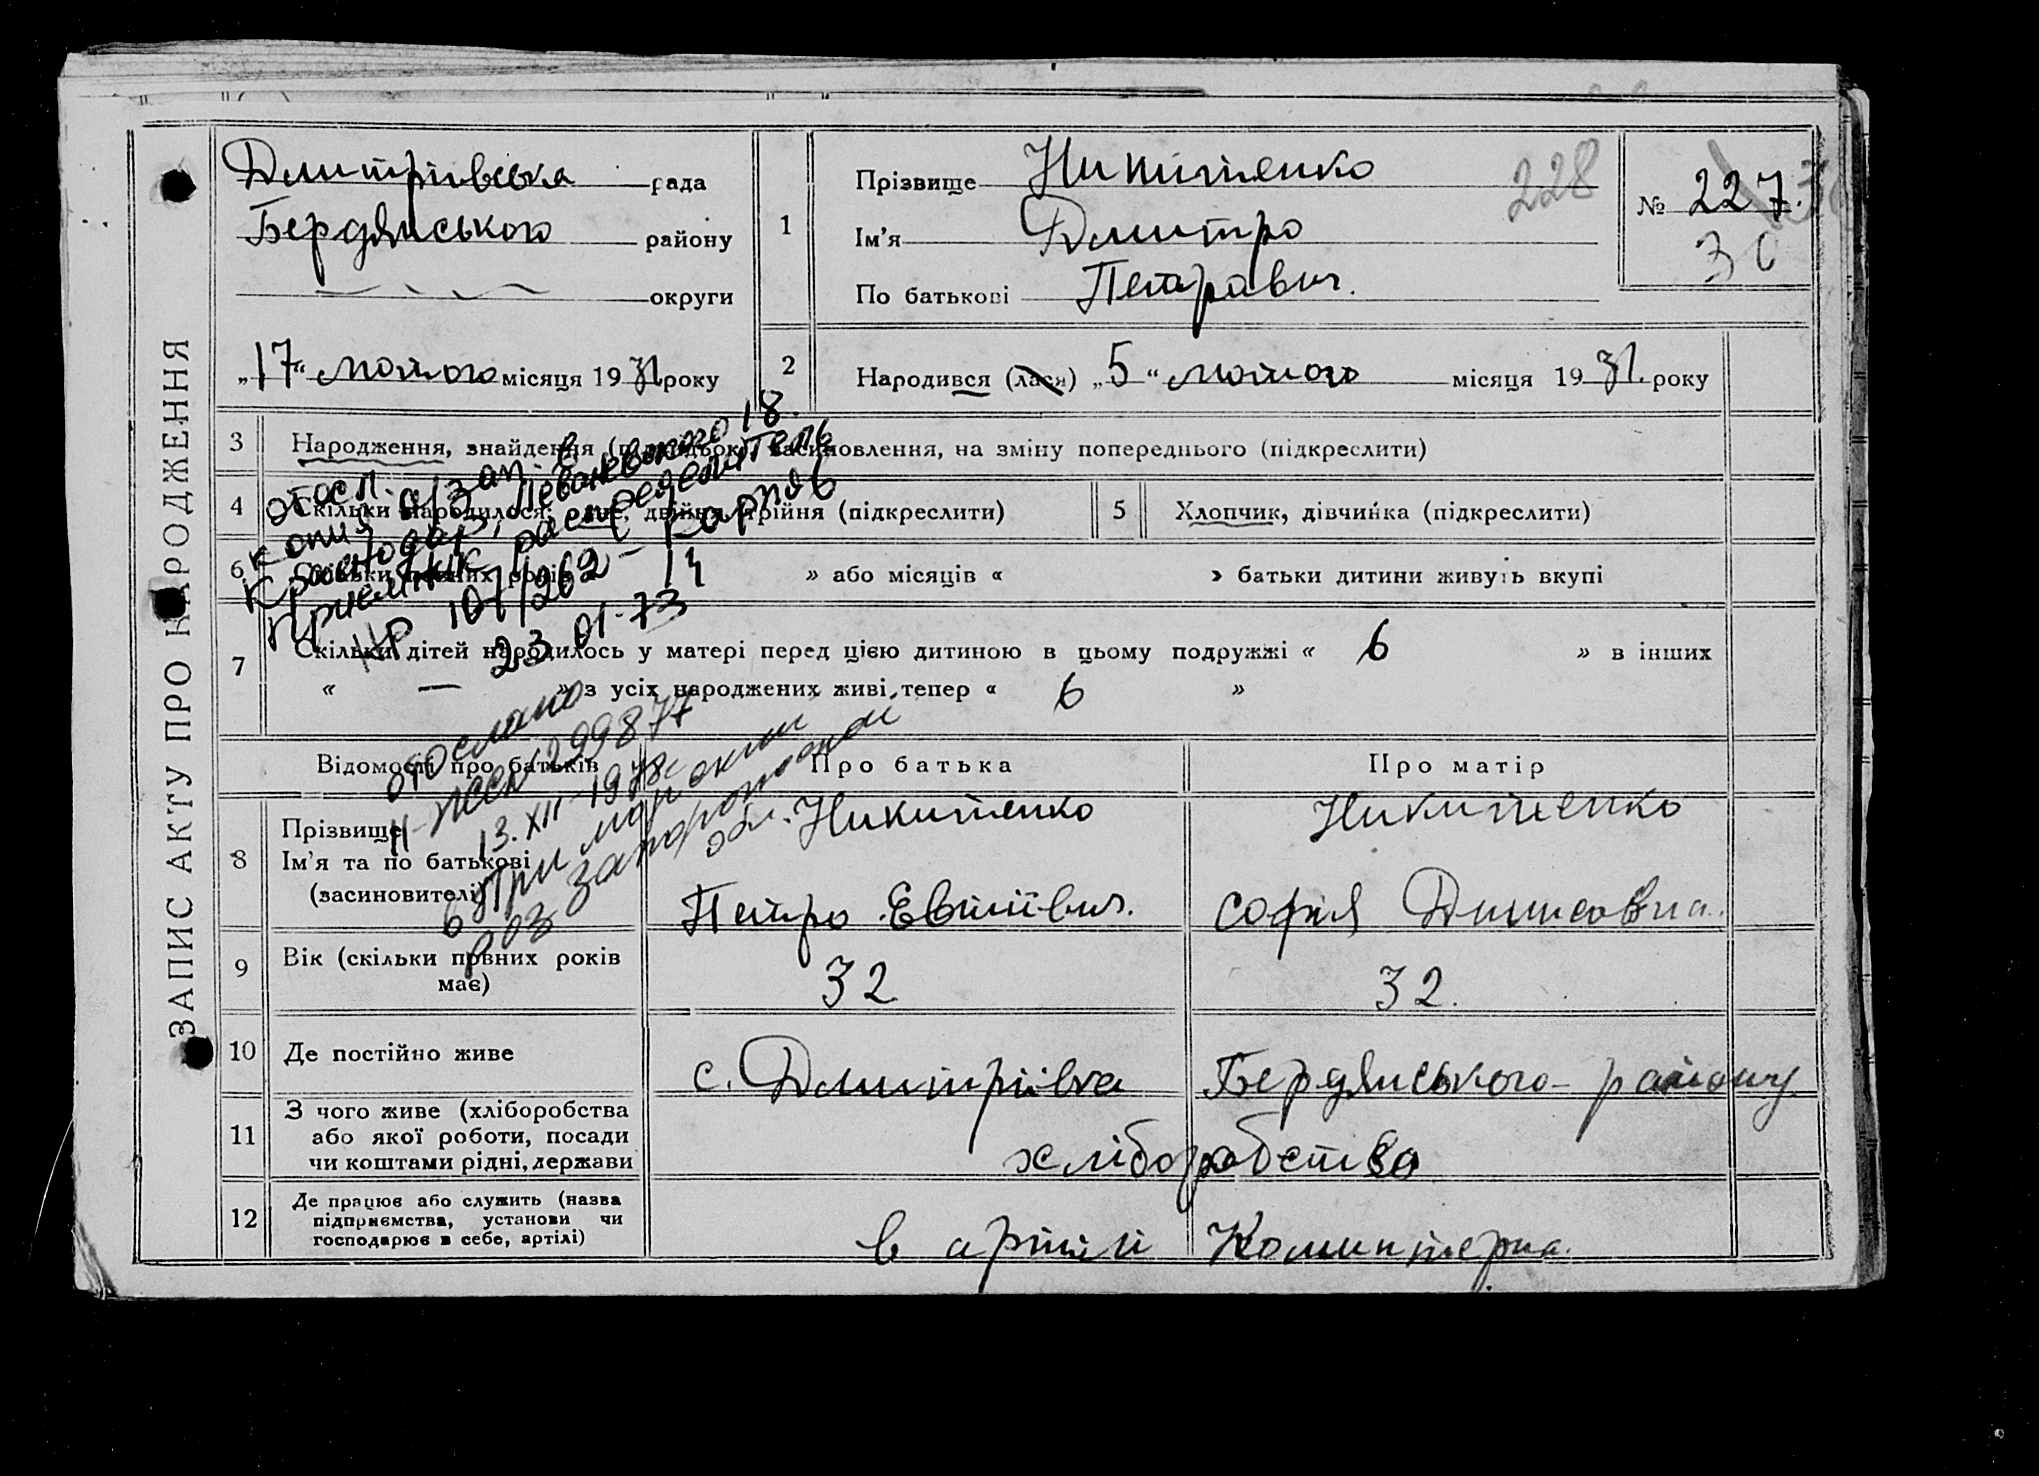 ЗАПИС АКТУ ПРО НАРОДЖЕННЯ
Дмитрівська рада
Бердянського району
округи
„17“ лютого місяця 1931 року
1
Прізвище Никитенко
Ім'я Дмитро
По батькові Петрович.
228
№ 227.
30
2
Народився (лася) „5“ лютого місяця 1931 року
3 Народження, знайдення (підкидьок) засиновлення, на зміну попереднього (підкреслити)
4 Скільки народилося: одне, двійня, трійня (підкреслити)
5 Хлопчик, дівчинка (підкреслити)
6 Скільки повних років » або місяців « » батьки дитини живуть вкупі
7 Скільки дітей народилось у матері перед цією дитиною в цьому подружжі « 6 » в інших
« — » з усіх народжених живі тепер « 6 »
отосл.
копия а/зап. в
Краснодар, Леваневского 18.
приемник распределитель
107/262
23.01-73
отослано
II-ЖС № 299877
13.XII-1978г
в Приморский
роз запорожской
обл.
Відомості про батьків Про батька Про матір
8 Прізвище
Ім'я та по батькові
(засиновителі)
Никитенко Никитенко
Петро Евтіївич. Софія Динисовна.
9 Вік (скільки повних років
має)
32 32.
10 Де постійно живе с. Дмитрівка Бердянського району
11 З чого живе (хліборобства
або якої роботи, посади
чи коштами рідні, держави
хліборобство
12 Де працює або служить (назва
підприємства, установи чи
господарює в себе, артілі)
в артілі Коминтерна.